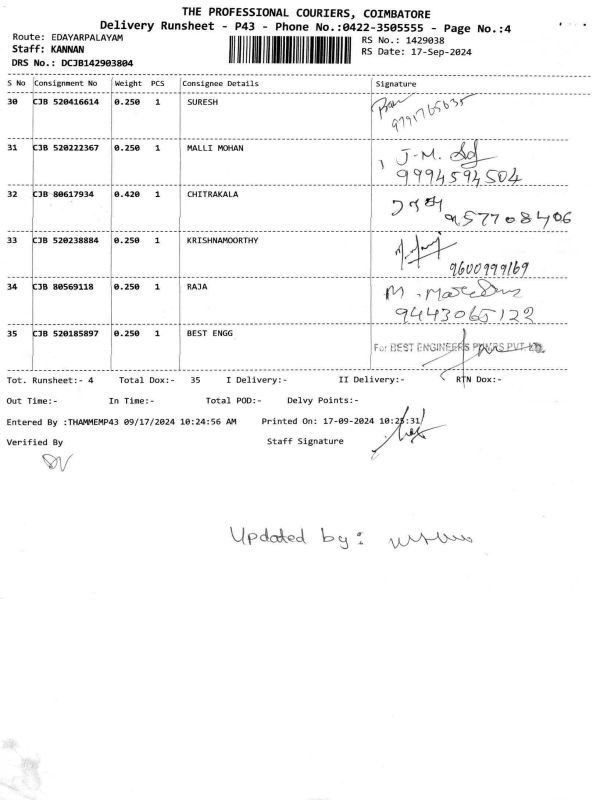 THE PROFESSIONAL COURIERS, COIMBATORE
Delivery Runsheet - P43 - Phone No.:0422-3505555 - Page No.:4
Route: EDAYARPALAYAM RS No.: 1429038
Staff: KANNAN RS Date: 17-Sep-2024
DRS No.: DCJB142903804
S No Consignment No Weight PCS Consignee Details Signature
30 CJB 520416614 0.250 1 SURESH
9791765635
31 CJB 520222367 0.250 1 MALLI MOHAN J-M.
9994594504
32 CJB 80617934 0.420 1 CHITRAKALA
9577708406
33 CJB 520238884 0.250 1 KRISHNAMOORTHY
9600999169
34 CJB 80569118 0.250 1 RAJA M.
9443065122
35 CJB 520185897 0.250 1 BEST ENGG
For BEST ENGINEERS PVT LTD.
Tot. Runsheet:- 4 Total Dox:- 35 I Delivery:- II Delivery:- RTN Dox:-
Out Time:- In Time:- Total POD:- Delvy Points:-
Entered By :THAMMEMP43 09/17/2024 10:24:56 AM Printed On: 17-09-2024 10:25:31
Verified By Staff Signature
Updated by: